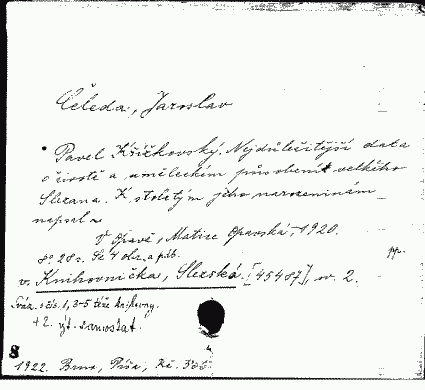 Čeleda, Jaroslav
Pavel Křížkovský. Nejdůležitější data
o životě a uměleckém působení velkého
Slezana. K stoletým jeho narozeninám
napsal ~
V Opavě, Matice Opavská, 1920.
8° 28 s. Se 4 obr. a pod.
v. Knihovnička, Slezská. [45487], sv. 2.
pp.
Sváz. s čís. 1, 3-5 téže knihovny.
+ 2. výt. samostat.
8
1922. Brno, Píša, Kč